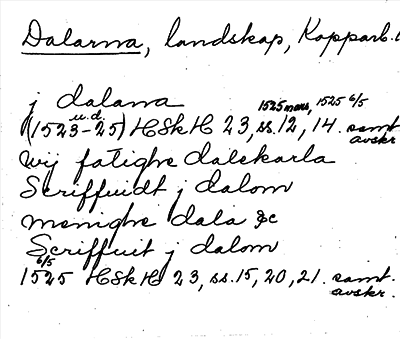 Dalarna, landskap, Kopparb.
j dalana
u.d. 1525 mars, 1525 6/5
(1523-25) HSkH 23, ss. 12, 14. samt.
avskr.
wij fatighe dalekarla
Scriffuidt j dalom
menighe dala &c
Scriffuit j dalom
6/5
1525 HSkH 23, ss. 15, 20, 21. samt.
avskr.